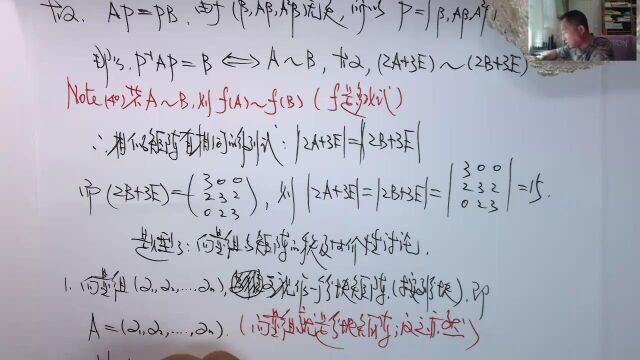 故2. AP=PB, 由于(β,Aβ,A²β)无关, 所以 P=|β,Aβ,A²
即: P⁻¹AP=B ⟺ A∼B, 故2, (2A+3E)∼(2B+3E)
Note 若A∼B, 则 f(A)∼f(B) (f是多项式)
∴相似矩阵有相同的行列式: |2A+3E|=|2B+3E|
而 (2B+3E)=(3 0 0
2 3 2
0 2 3), 则 |2A+3E|=|2B+3E|=|3 0 0
2 3 2
0 2 3|=15.
题型3: 向量组与矩阵的 等价性讨论.
1. 向量组(α₁,α₂,…,αₙ), 矩阵. 即
A=(α₁,α₂,…,αₙ). (向量组就是 矩阵; 反之亦然)